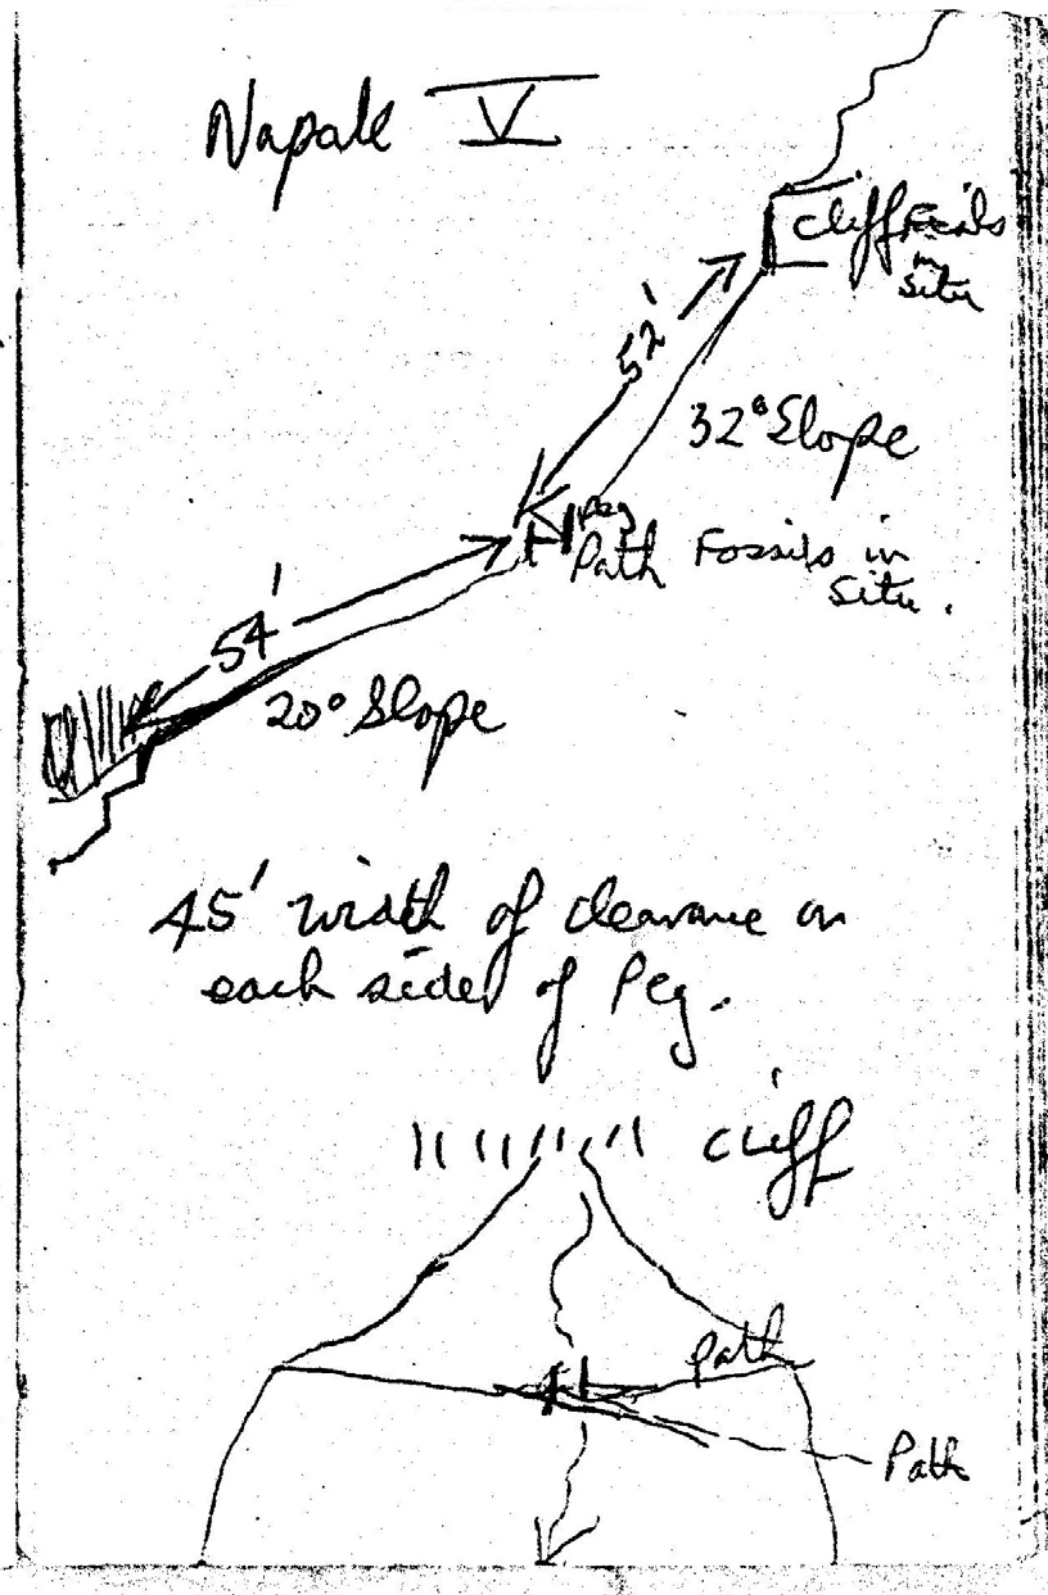 Napak V
cliff Fossils
in
situ
52'
32° Slope
Peg
Path Fossils in
situ.
54'
20° Slope
45' width of clearance on
each side of Peg.
cliff
path
Path